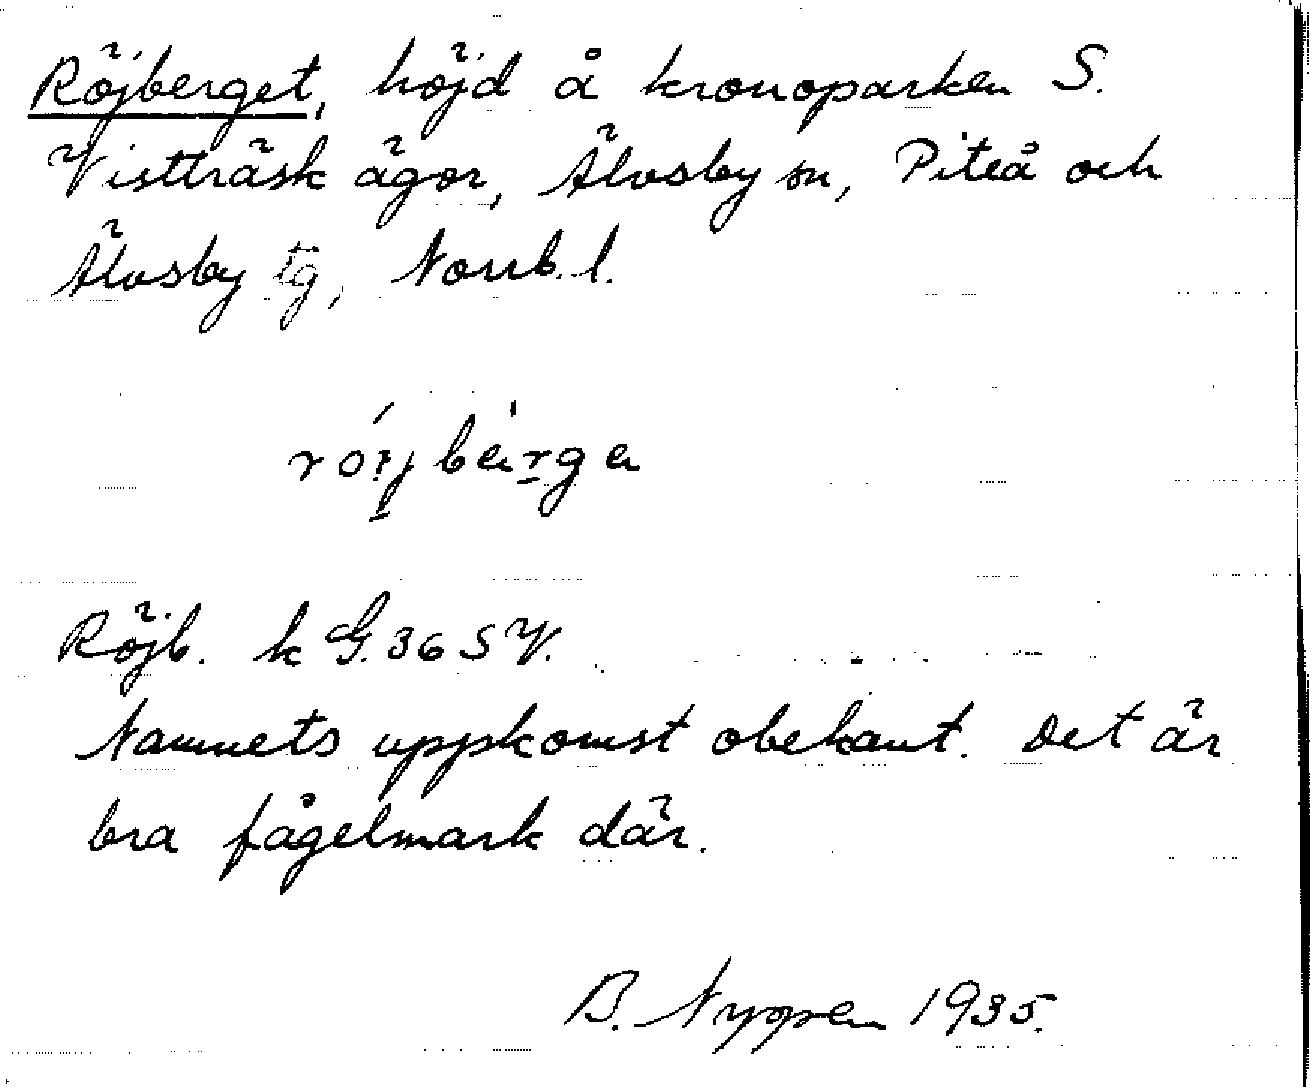 Röjberget, höjd å kronoparken S.
Vistträsk ägor, Älvsby sn, Piteå och
Älvsby tg, Norrb. l.
Röjb. k G. 36 S V.
Namnets uppkomst obekant. Det är
bra fågelmark där.
B. Nygren 1935.